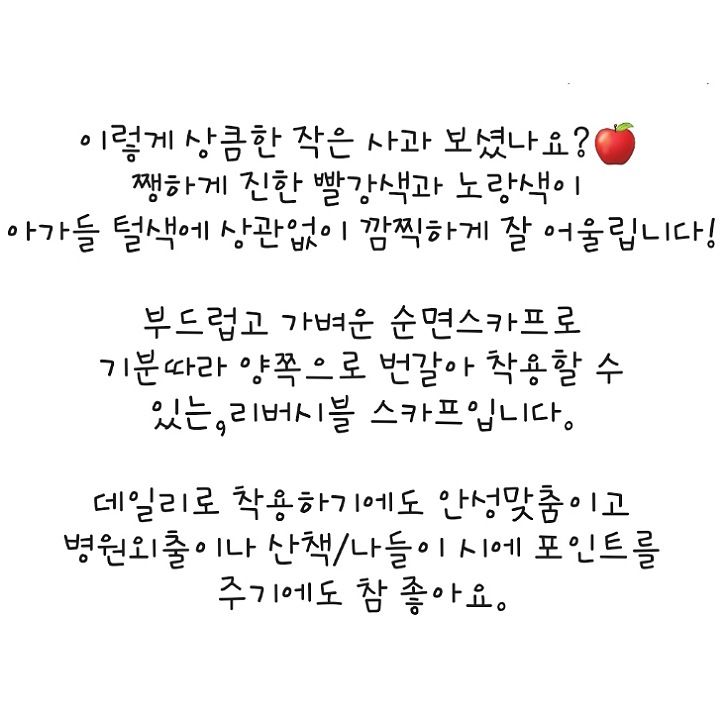 이렇게 상큼한 작은 사과 보셨나요?🍎
쨍하게 진한 빨강색과 노랑색이
아가들 털색에 상관없이 깜찍하게 잘 어울립니다!
부드럽고 가벼운 순면스카프로
기분따라 양쪽으로 번갈아 착용할 수
있는,리버시블 스카프입니다.
데일리로 착용하기에도 안성맞춤이고
병원외출이나 산책/나들이 시에 포인트를
주기에도 참 좋아요.